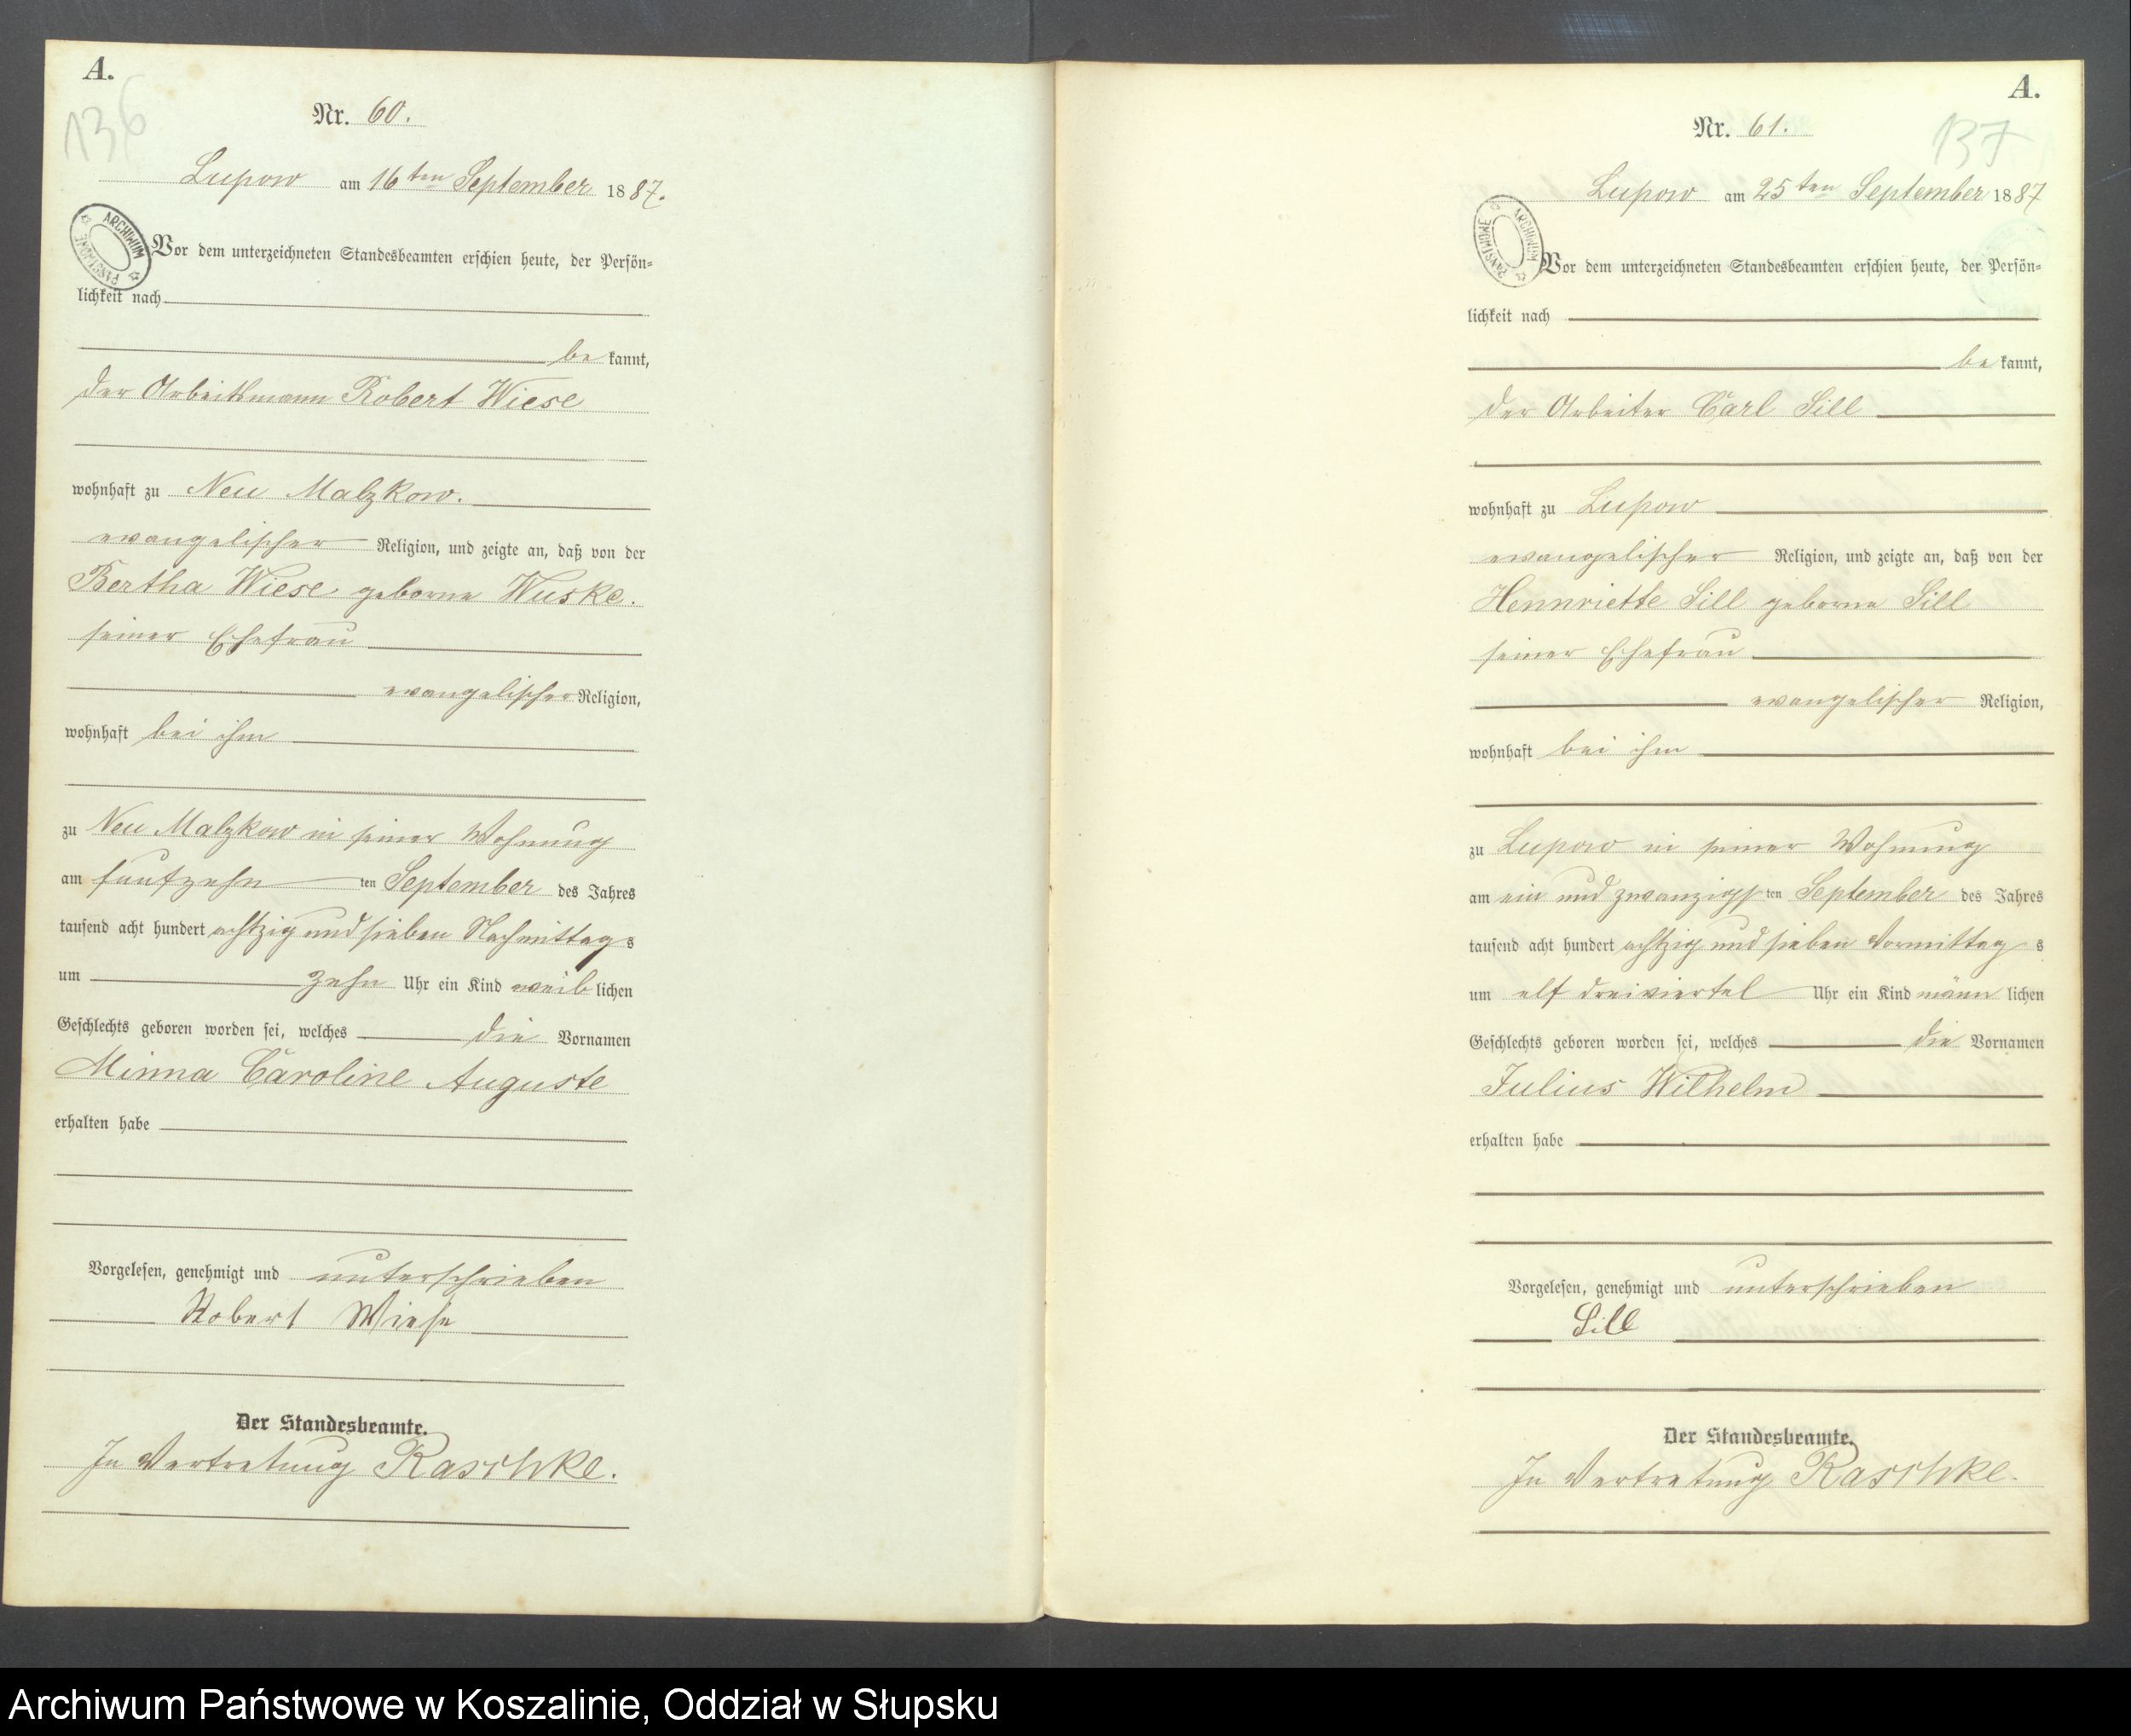 A.
136
Nr. 60.
Lupow am 16ten September 1887.
ARCHIWUM PAŃSTWOWE
Vor dem unterzeichneten Standesbeamten erschien heute, der Persön=
lichkeit nach
be kannt,
der Arbeitsmann Robert Wiese
wohnhaft zu Neu Malzkow.
evangelischer Religion, und zeigte an, daß von der
Bertha Wiese geborne Wuske.
seiner Ehefrau
evangelischer Religion,
wohnhaft bei ihm
zu Neu Malzkow in seiner Wohnung
am funfzehn ten September des Jahres
tausend acht hundert achtzig und sieben Nachmittags
um zehn Uhr ein Kind weiblichen
Geschlechts geboren worden sei, welches die Vornamen
Minna Caroline Auguste
erhalten habe
Vorgelesen, genehmigt und unterschrieben
Robert Wiese
Der Standesbeamte.
In Vertretung Raschke.
A.
137
Nr. 61.
Lupow am 25ten September 1887
ARCHIWUM PAŃSTWOWE
Vor dem unterzeichneten Standesbeamten erschien heute, der Persön=
lichkeit nach
be kannt,
der Arbeiter Carl Sill
wohnhaft zu Lupow
evangelischer Religion, und zeigte an, daß von der
Hennriette Sill geborne Sill
seiner Ehefrau
evangelischer Religion,
wohnhaft bei ihm
zu Lupow in seiner Wohnung
am ein und zwanzigsten September des Jahres
tausend acht hundert achtzig und sieben Vormittags
um elf dreiviertel Uhr ein Kind männlichen
Geschlechts geboren worden sei, welches die Vornamen
Julius Wilhelm
erhalten habe
Vorgelesen, genehmigt und unterschrieben
Sill
Der Standesbeamte.
In Vertretung Raschke.
Archiwum Państwowe w Koszalinie, Oddział w Słupsku